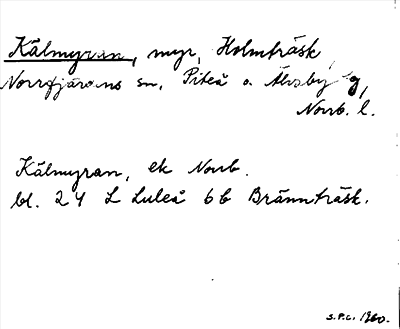 Kälmyran, myr, Holmträsk,
Norrfjärdens sn, Piteå o. Älvsby tg,
Norrb. l.
Kälmyran, ek Norrb.
bl. 24 L Luleå 6b Brännträsk.
S.P.C. 1960.